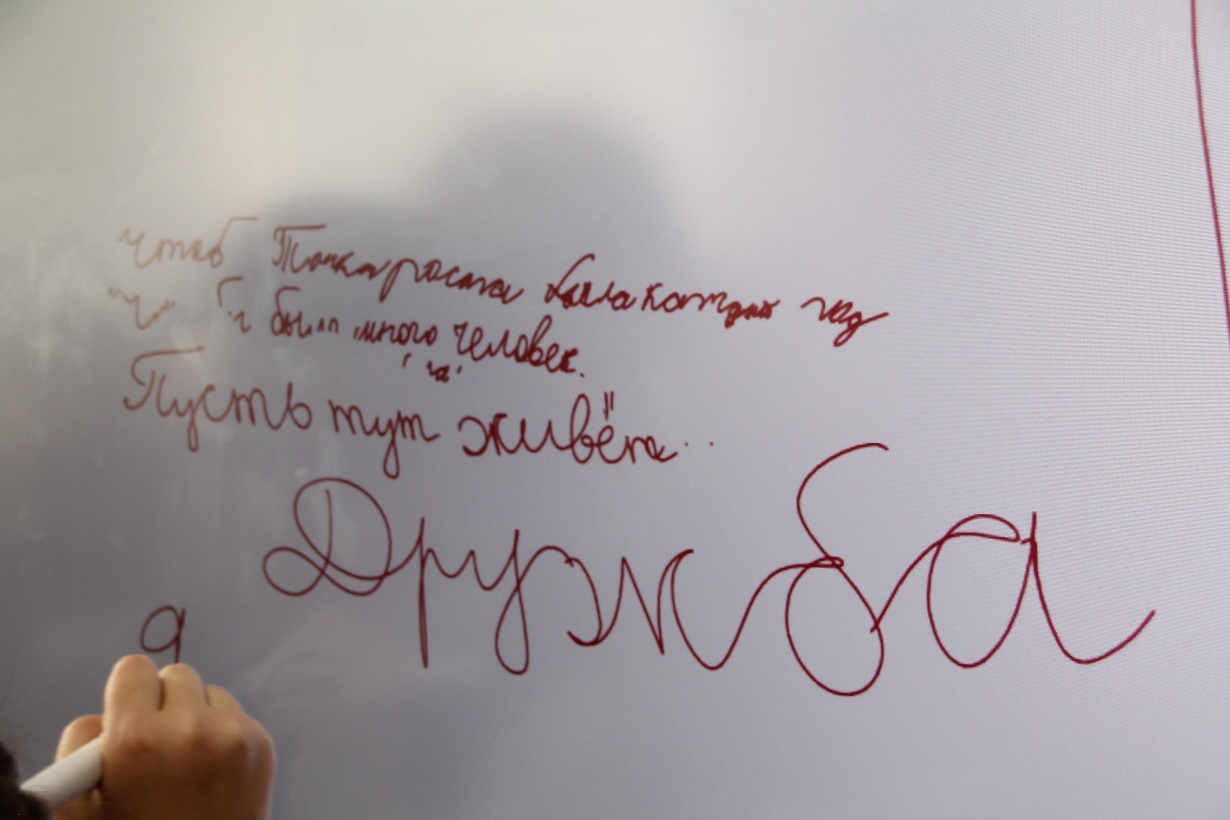 чтоб Точка роста была каждый год
"Ч" и было много человек.
"а"
Пусть тут живёт...
Дружба